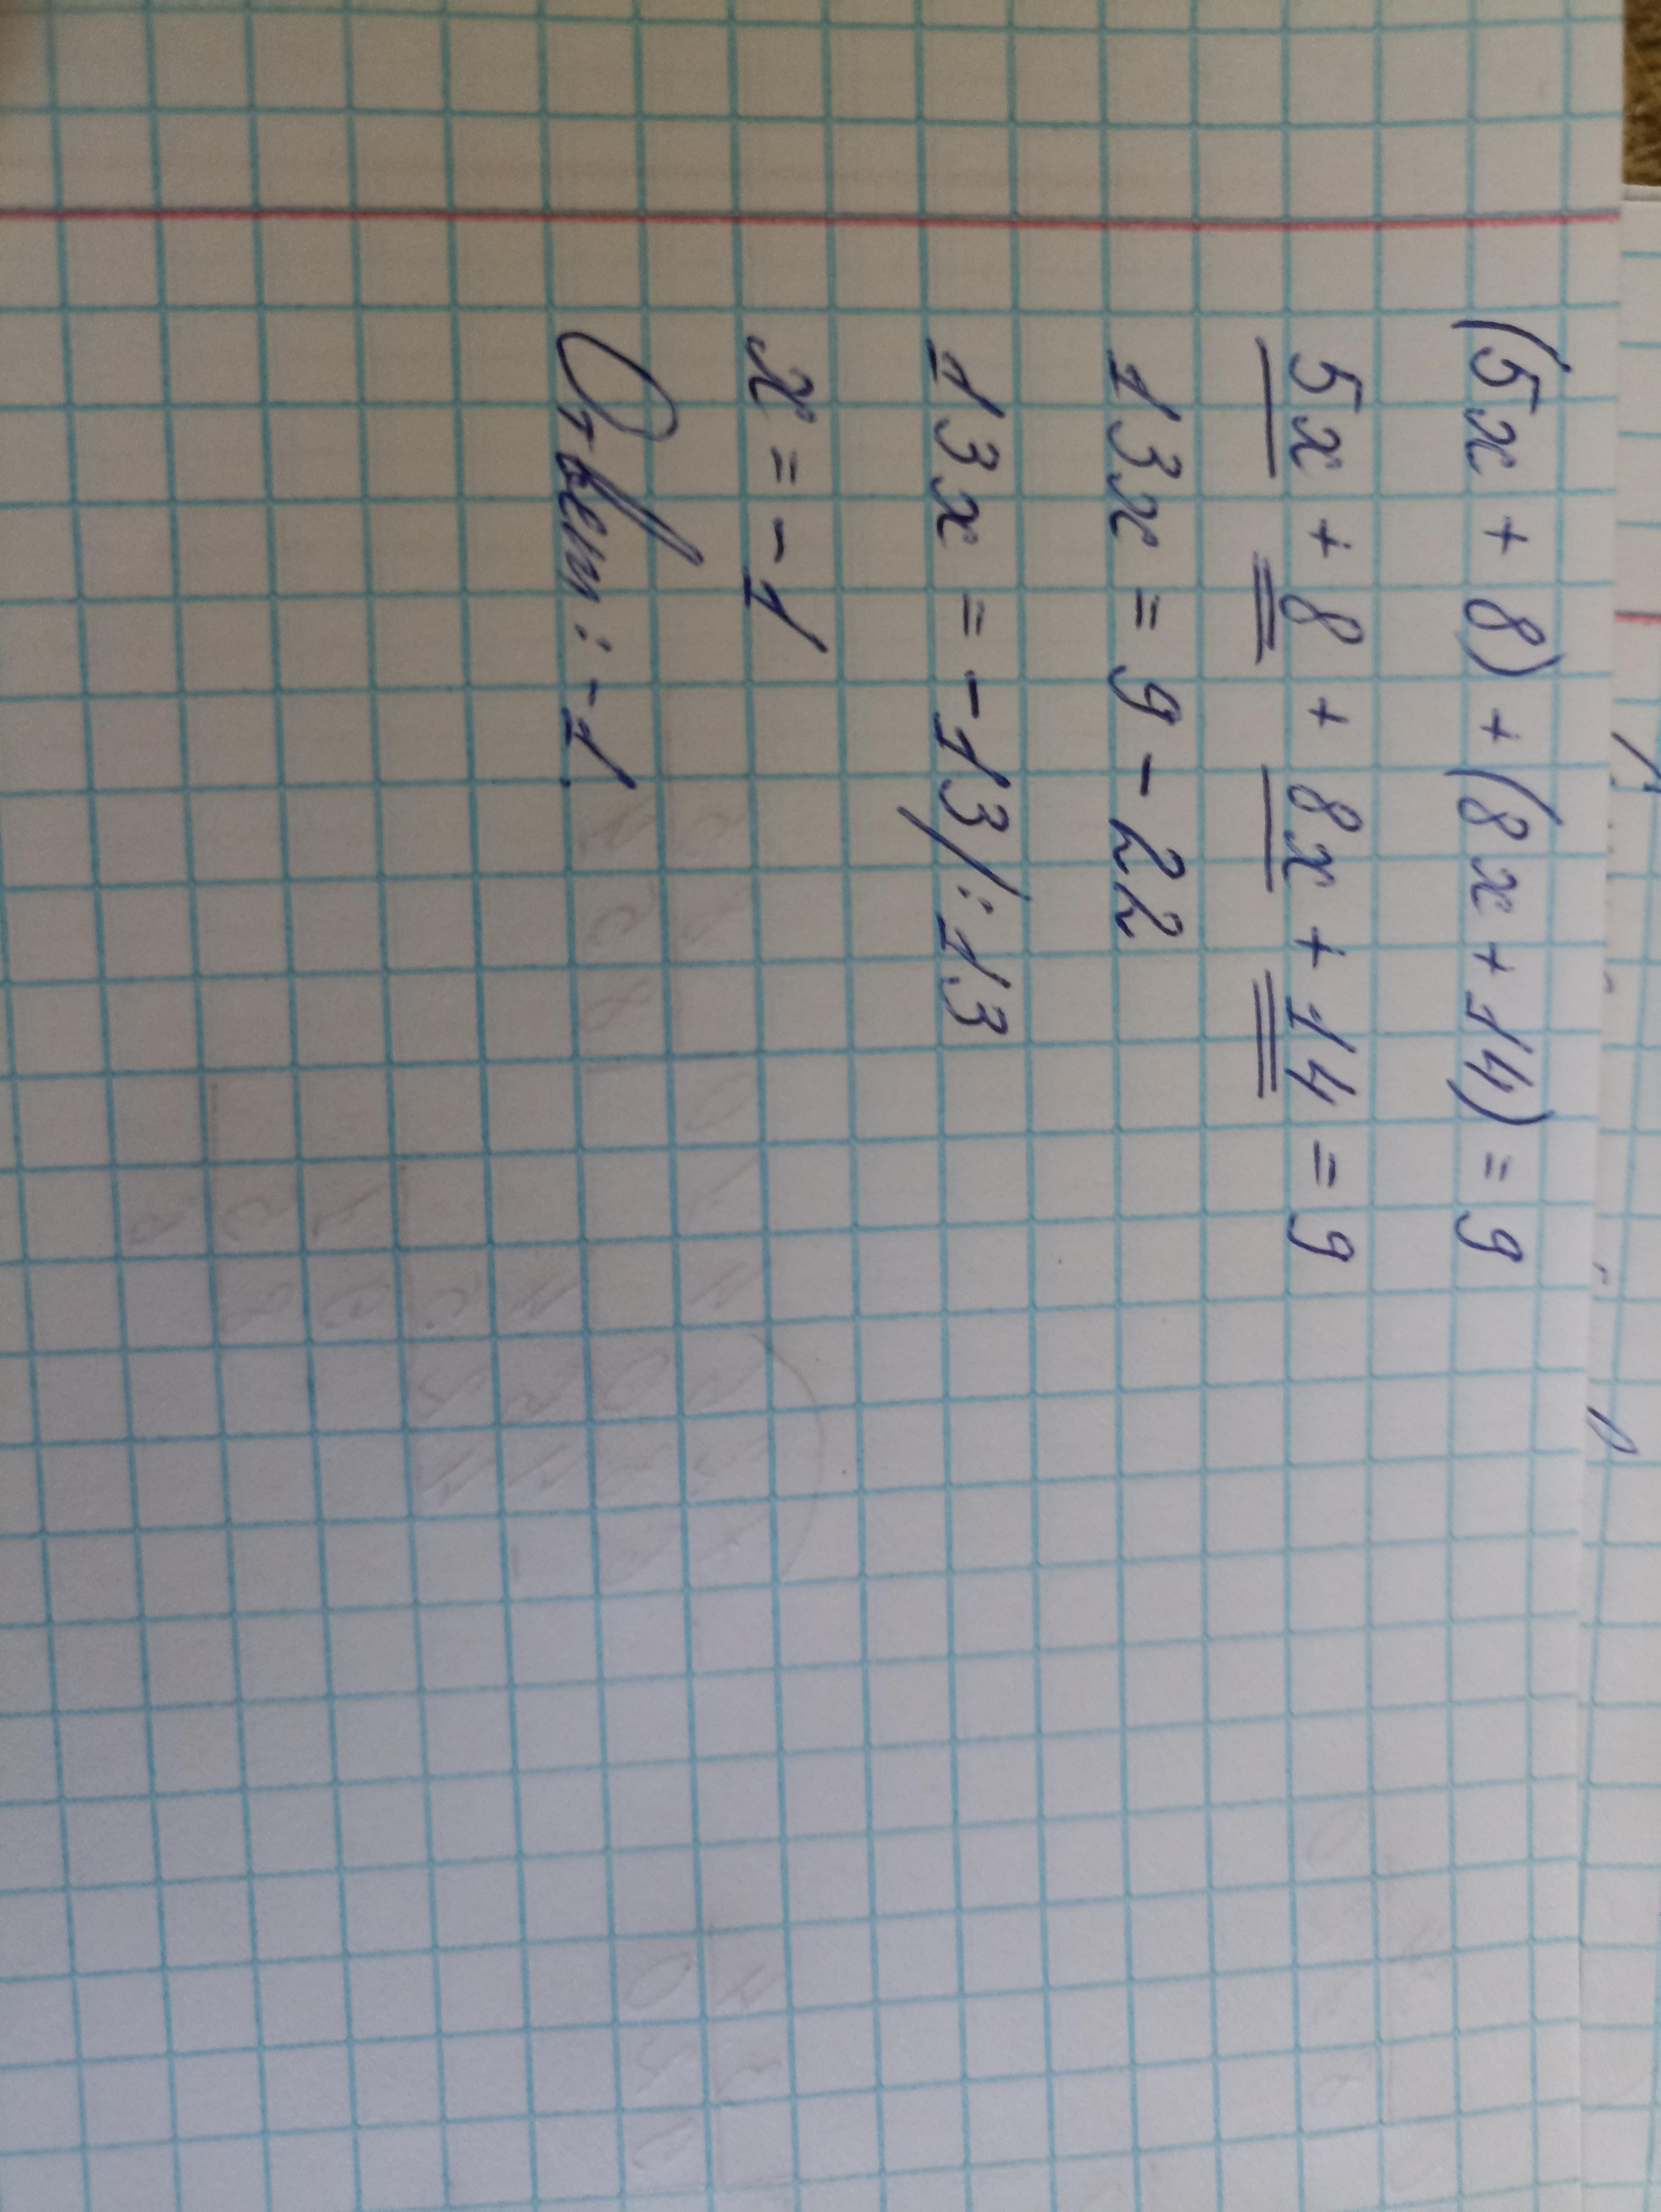 (5x + 8) + (8x + 14) = 9
5x + 8 + 8x + 14 = 9
13x = 9 - 22
13x = -13 /:13
x = -1
Ответ: -1.